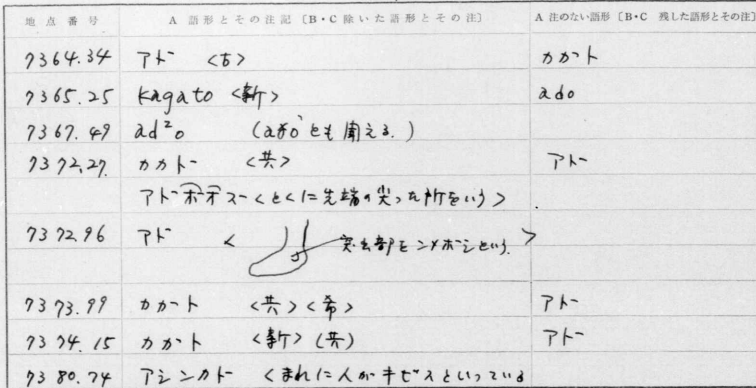 地点番号 A 語形とその注記〔B・C 除いた語形とその注〕 A 注のない語形〔B・C 残した語形とその注〕
7364.34 アトー <古> カカト
7365.25 kagato <新> ado
7367.49 ad²o (aðoとも聞える.)
7372.27. カカトー <共> アトー
アトーボオスー<とくに先端の尖った所をいう>
7372.96 アトー < 突出部をンメボシという. >
7373.99 カカート <共><希> アトー
7374.15 カカート <新>(共) アトー
7380.74 アシンカトー <まれに人がキビスといっている